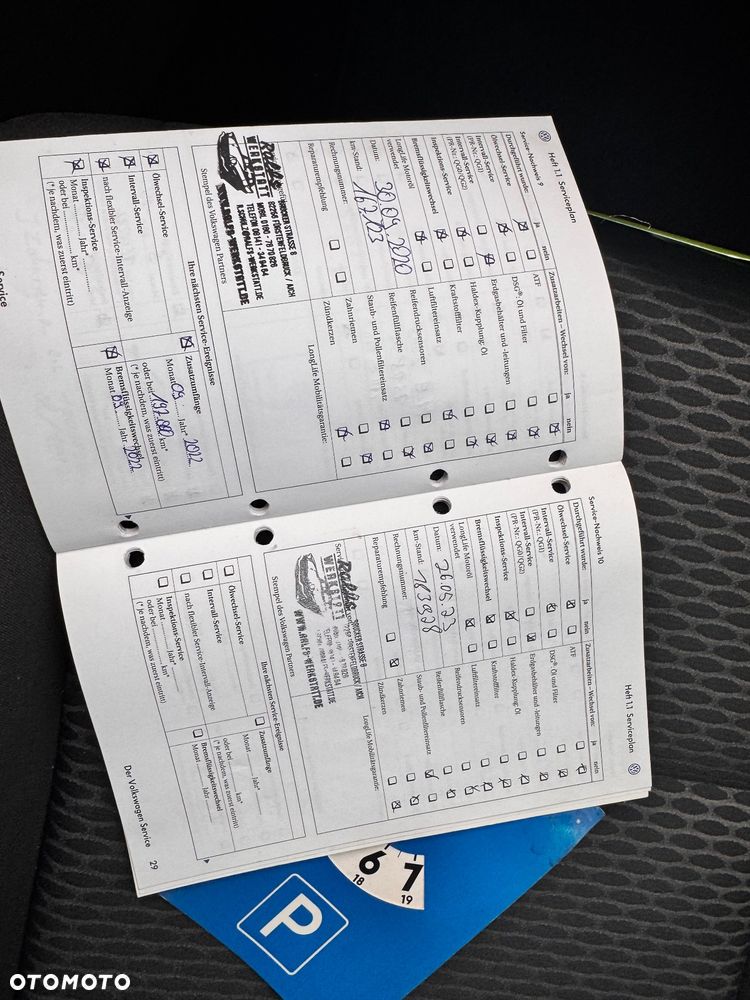 Heft 1.1 Serviceplan
Service-Nachweis 9
Durchgeführt wurde: ja nein
Ölwechsel-Service
Intervall-Service
(PR-Nr.: QG1)
Intervall-Service
(PR-Nr.: QG0/QG2)
Inspektions-Service
Bremsflüssigkeitswechsel
LongLife Motoröl
verwendet
Datum: 30.09.2020
km-Stand: 167.123
Rechnungsnummer:
Reparaturempfehlung
Zusatzarbeiten – Wechsel von: ja nein
ATF
DSG®: Öl und Filter
Erdgasbehälter und -leitungen
Haldex-Kupplung: Öl
Kraftstofffilter
Luftfiltereinsatz
Reifendrucksensoren
Reifenfüllflasche
Staub- und Pollenfiltereinsatz
Zahnriemen
Zündkerzen
LongLife Mobilitätsgarantie:
Ralfs
WERKSTATT
BRUCKER STRASSE 8
82256 FÜRSTENFELDBRUCK / AICH
WWW.RALFS-WERKSTATT.DE
Stempel des Volkswagen Partners
Ihre nächsten Service-Ereignisse
Ölwechsel-Service
Intervall-Service
nach flexibler Service-Intervall-Anzeige
Inspektions-Service
Monat Jahr*
oder bei km*
(* je nachdem, was zuerst eintritt)
Zusatzumfänge
Monat 09 Jahr* 2022
oder bei 197.000 km*
(* je nachdem, was zuerst eintritt)
Bremsflüssigkeitswechsel
Monat 09 Jahr 2022
Heft 1.1 Serviceplan
Service-Nachweis 10
Durchgeführt wurde: ja nein
Ölwechsel-Service
Intervall-Service
(PR-Nr.: QG1)
Intervall-Service
(PR-Nr.: QG0/QG2)
Inspektions-Service
Bremsflüssigkeitswechsel
LongLife Motoröl
verwendet
Datum: 26.05.23
km-Stand: 183928
Rechnungsnummer:
Reparaturempfehlung
Zusatzarbeiten – Wechsel von: ja nein
ATF
DSG®: Öl und Filter
Erdgasbehälter und -leitungen
Haldex-Kupplung: Öl
Kraftstofffilter
Luftfiltereinsatz
Reifendrucksensoren
Reifenfüllflasche
Staub- und Pollenfiltereinsatz
Zahnriemen
Zündkerzen
LongLife Mobilitätsgarantie:
Ralfs
WERKSTATT
BRUCKER STRASSE 8
WWW.RALFS-WERKSTATT.DE
Stempel des Volkswagen Partners
Ihre nächsten Service-Ereignisse
Ölwechsel-Service
Intervall-Service
nach flexibler Service-Intervall-Anzeige
Inspektions-Service
Monat Jahr*
oder bei km*
(* je nachdem, was zuerst eintritt)
Zusatzumfänge
Monat Jahr*
oder bei km*
(* je nachdem, was zuerst eintritt)
Bremsflüssigkeitswechsel
Monat Jahr
Der Volkswagen Service 29
Service
6 7
18 19
P
OTOMOTO